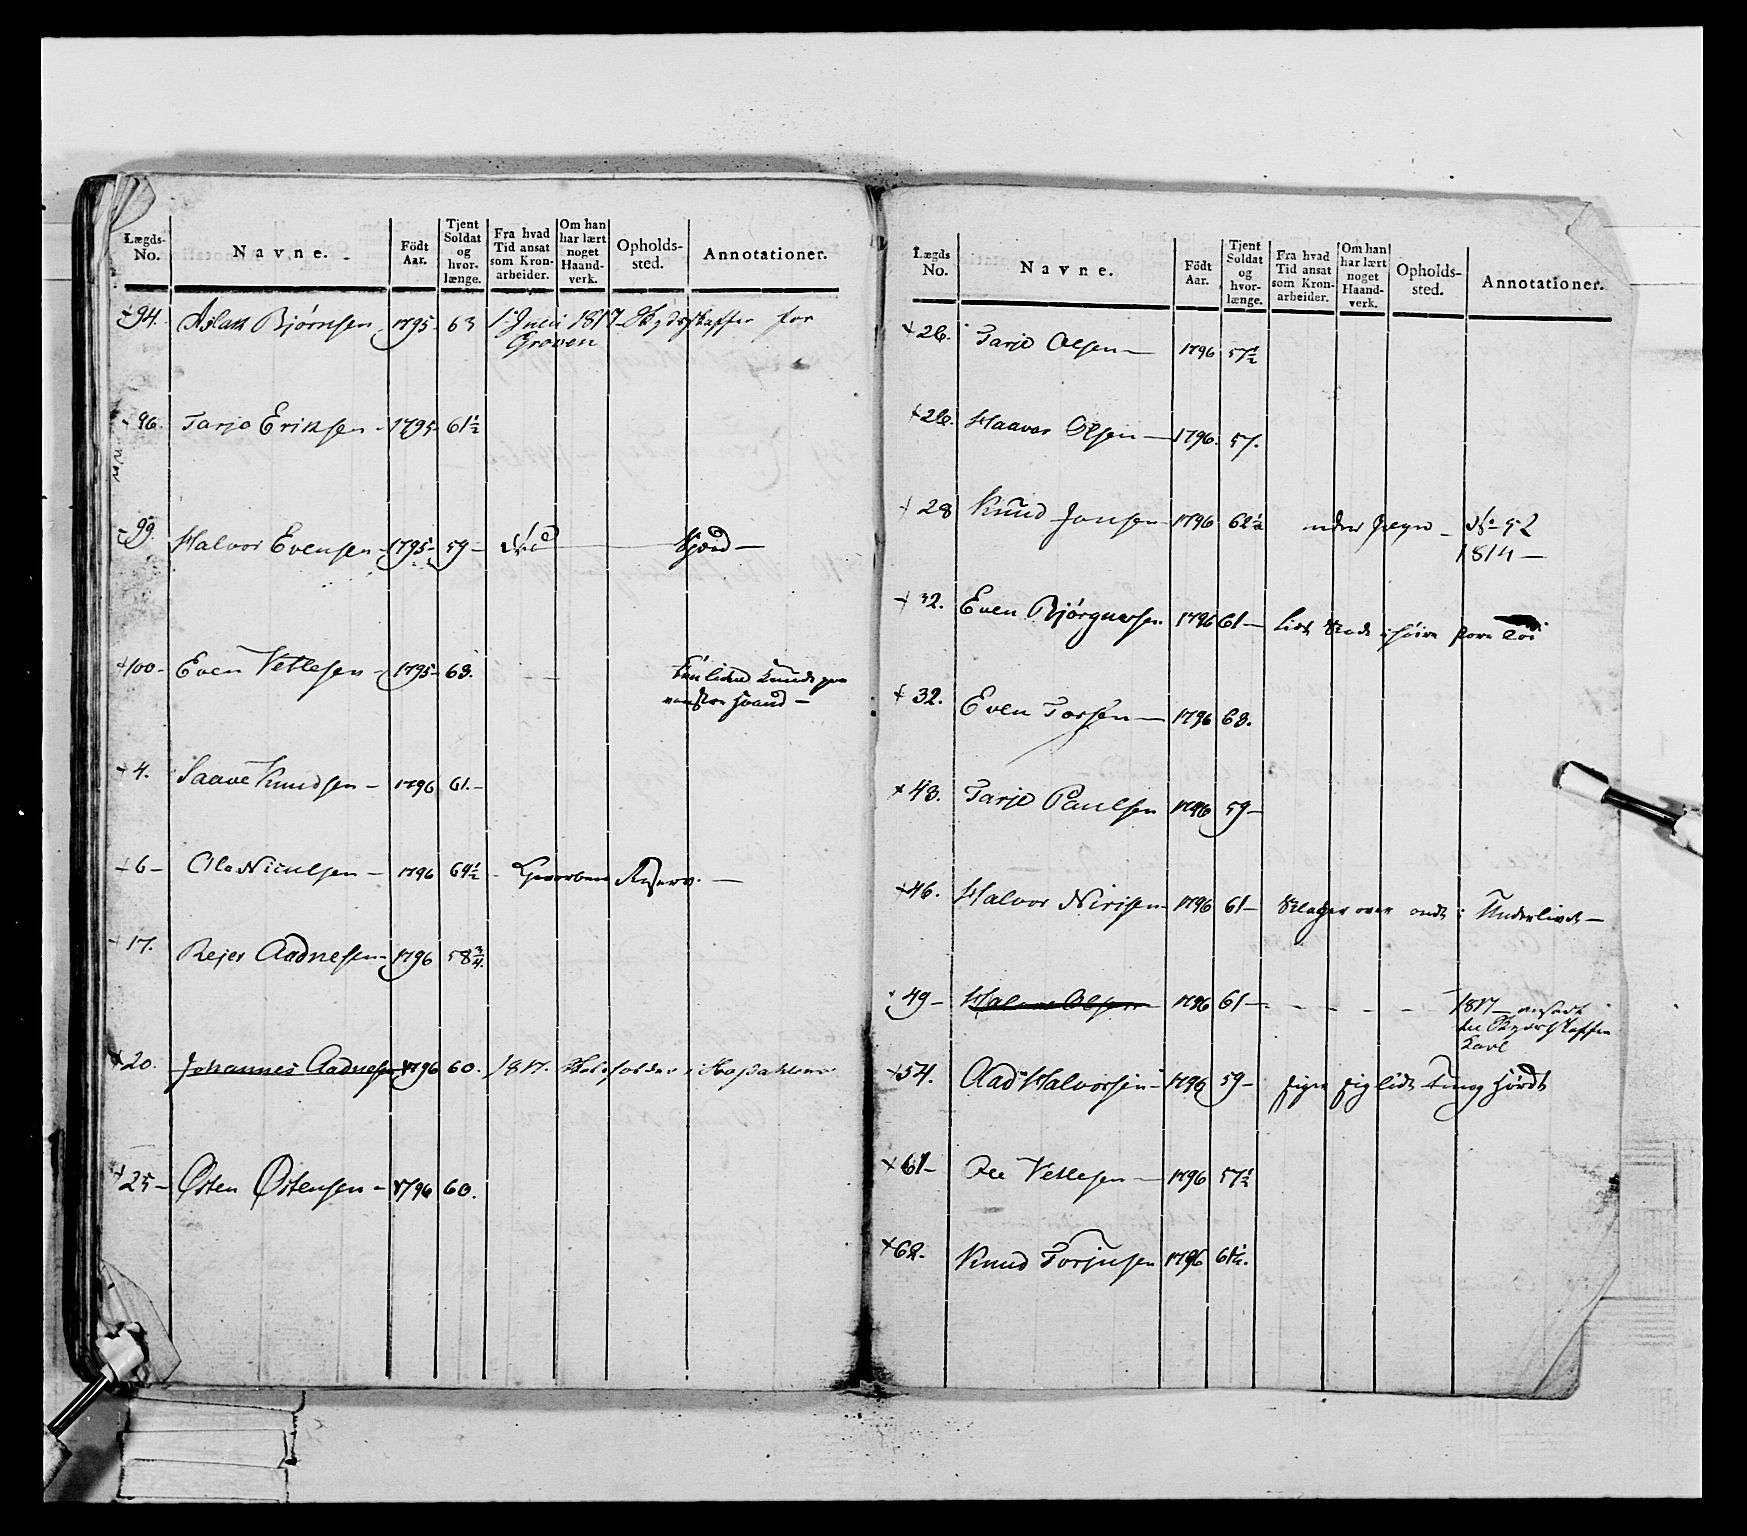 Lægds-No. Navne. Födt Aar. Tjent Soldat og hvor-længe. Fra hvad Tid ansat som Kron-arbeider. Om han har lært noget Haand-verk. Opholds-sted. Annotationer.
94. Aslak Bjørnsen 1795 63 1 Julii 1817 Skydsskaffer for
Groven
96. Tarje Eriksen - 1795 61½
99. Halvor Evensen - 1795 59 -
100 - Even Vetlesen - 1795 63.
liden
venstre Haand -
4. Saave Knudsen - 1796 61. -
6 - Ole Niculsen - 1796 64½ - Gevorben Reserv. -
17. Rejer Aadnesen - 1796 58¾.
20. Johannes Aadnesen 1796 60. 1817. Holdsolder i
25 - Østen Østensen - 1796 60.
Lægds No. Navne. Födt Aar. Tjent Soldat og hvor-længe. Fra hvad Tid ansat som Kron-arbeider. Om han har lært noget Haand-verk. Opholds-sted. Annotationer.
26. Tarje Olsen - 1796 57½
26. Haavor Olsen - 1796. 57.
28 Knud Jonsen 1796 62½ No 52
1814 -
32. Even Bjørguvsen 1796 61 - lidt i høire
32. Even Torsen - 1796 63.
43. Tarje Paulsen 1796 59 -
46. Halvor Nirisen 1796 61 - klager over ondt i Underlivet -
49 - Halvor Olsen 1796 61 - - - - - 1817 - ansadt
til Skydsskaffer
Karl
54. Aad Halvorsen - 1796 59 - siger sig lidt tung Hørdt
61 - Ole Vetlesen - 1796 57½
62. Knud Torjusen 1796 61½.